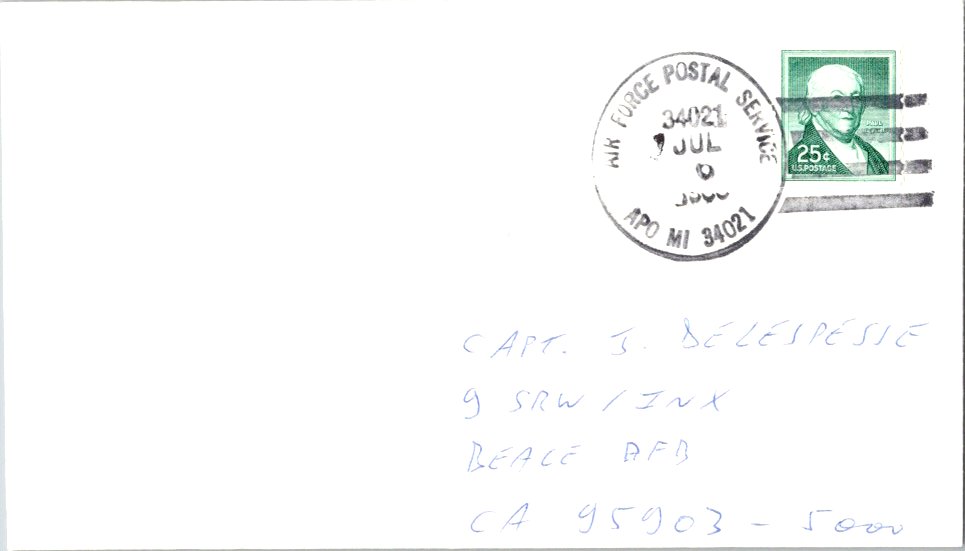 AIR FORCE POSTAL SERVICE
34021
JUL
6
APO MI 34021
PAUL
25¢
U.S. POSTAGE
CAPT. J. DELESPESSE
9 SRW / INX
BEALE AFB
CA 95903 - 5000